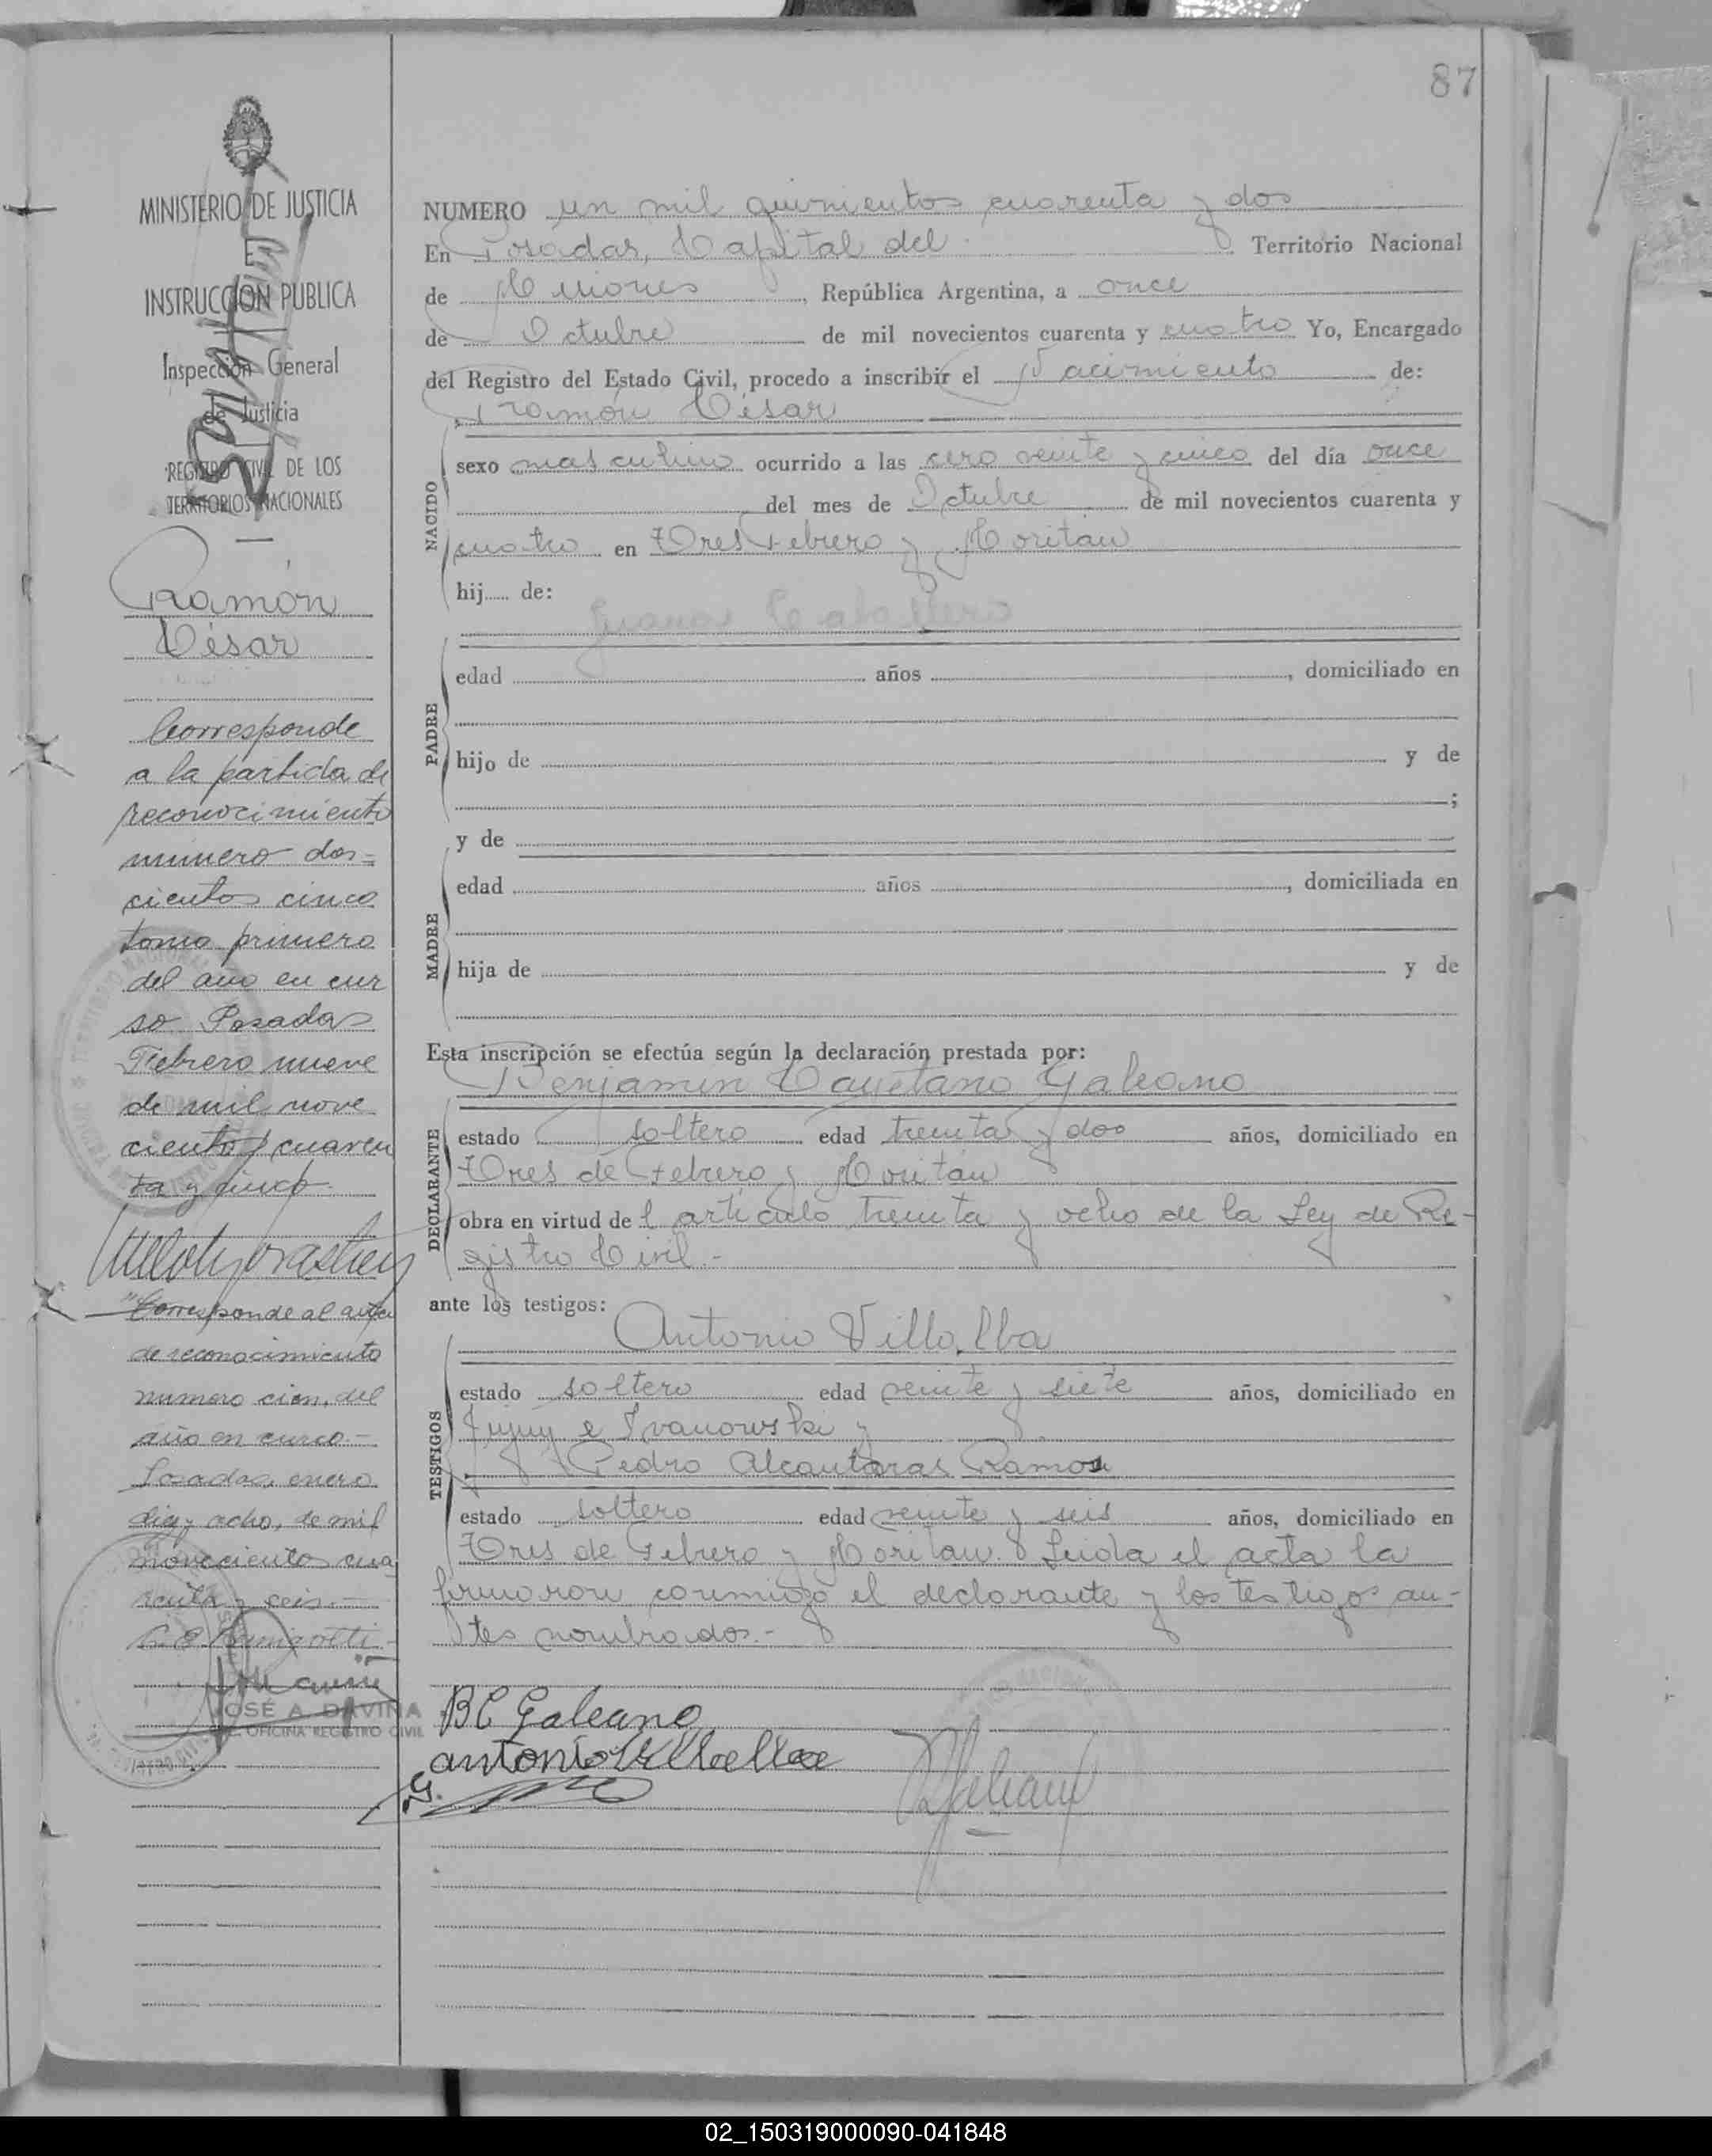 87
MINISTERIO DE JUSTICIA
E
INSTRUCCION PUBLICA
Inspección General
de Justicia
REGISTRO CIVIL DE LOS
TERRITORIOS NACIONALES
Ramón
César
Corresponde
a la partida de
reconocimiento
numero dos=
cientos cinco
tomo primero
del año en cur
so Posadas
Febrero nueve
de mil nove
cientos cuaren
ta y cinco
Corresponde al acta
de reconocimiento
numero cien, del
año en curso-
Posadas, enero
diez y ocho, de mil
novecientos cua
renta y seis.-
JOSÉ A. DAVIÑA
OFICINA REGISTRO CIVIL
NUMERO un mil quinientos cuarenta y dos
En Posadas, Capital del Territorio Nacional
de Misiones, República Argentina, a once
de Octubre de mil novecientos cuarenta y cuatro Yo, Encargado
del Registro del Estado Civil, procedo a inscribir el Nacimiento de:
Ramón César
NACIDO
sexo masculino ocurrido a las cero veinte y cinco del día once
del mes de Octubre de mil novecientos cuarenta y
cuatro en Tres Febrero y Moritán
hij..... de:
Juana Caballero
PADRE
edad años , domiciliado en
hijo de y de
;
y de
MADRE
edad años , domiciliada en
hija de y de
Esta inscripción se efectúa según la declaración prestada por:
Benjamin Cayetano Galeano
DECLARANTE
estado soltero edad treinta y dos años, domiciliado en
Tres de Febrero y Moritán
obra en virtud del articulo treinta y ocho de la Ley de Re-
gistro Civil.-
ante los testigos:
Antonio Villalba
TESTIGOS
estado soltero edad veinte y siete años, domiciliado en
Jujuy e Ivanowski y
Pedro Alcantaras Ramos
estado soltero edad veinte y seis años, domiciliado en
Tres de Febrero y Moritan. Leida el acta la
firmaron conmigo el declarante y los testigos an-
tes nombrados.-
B C Galeano
antonio Villalba
02_150319000090-041848